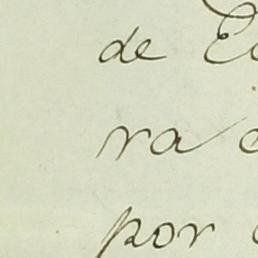 de
ra
por